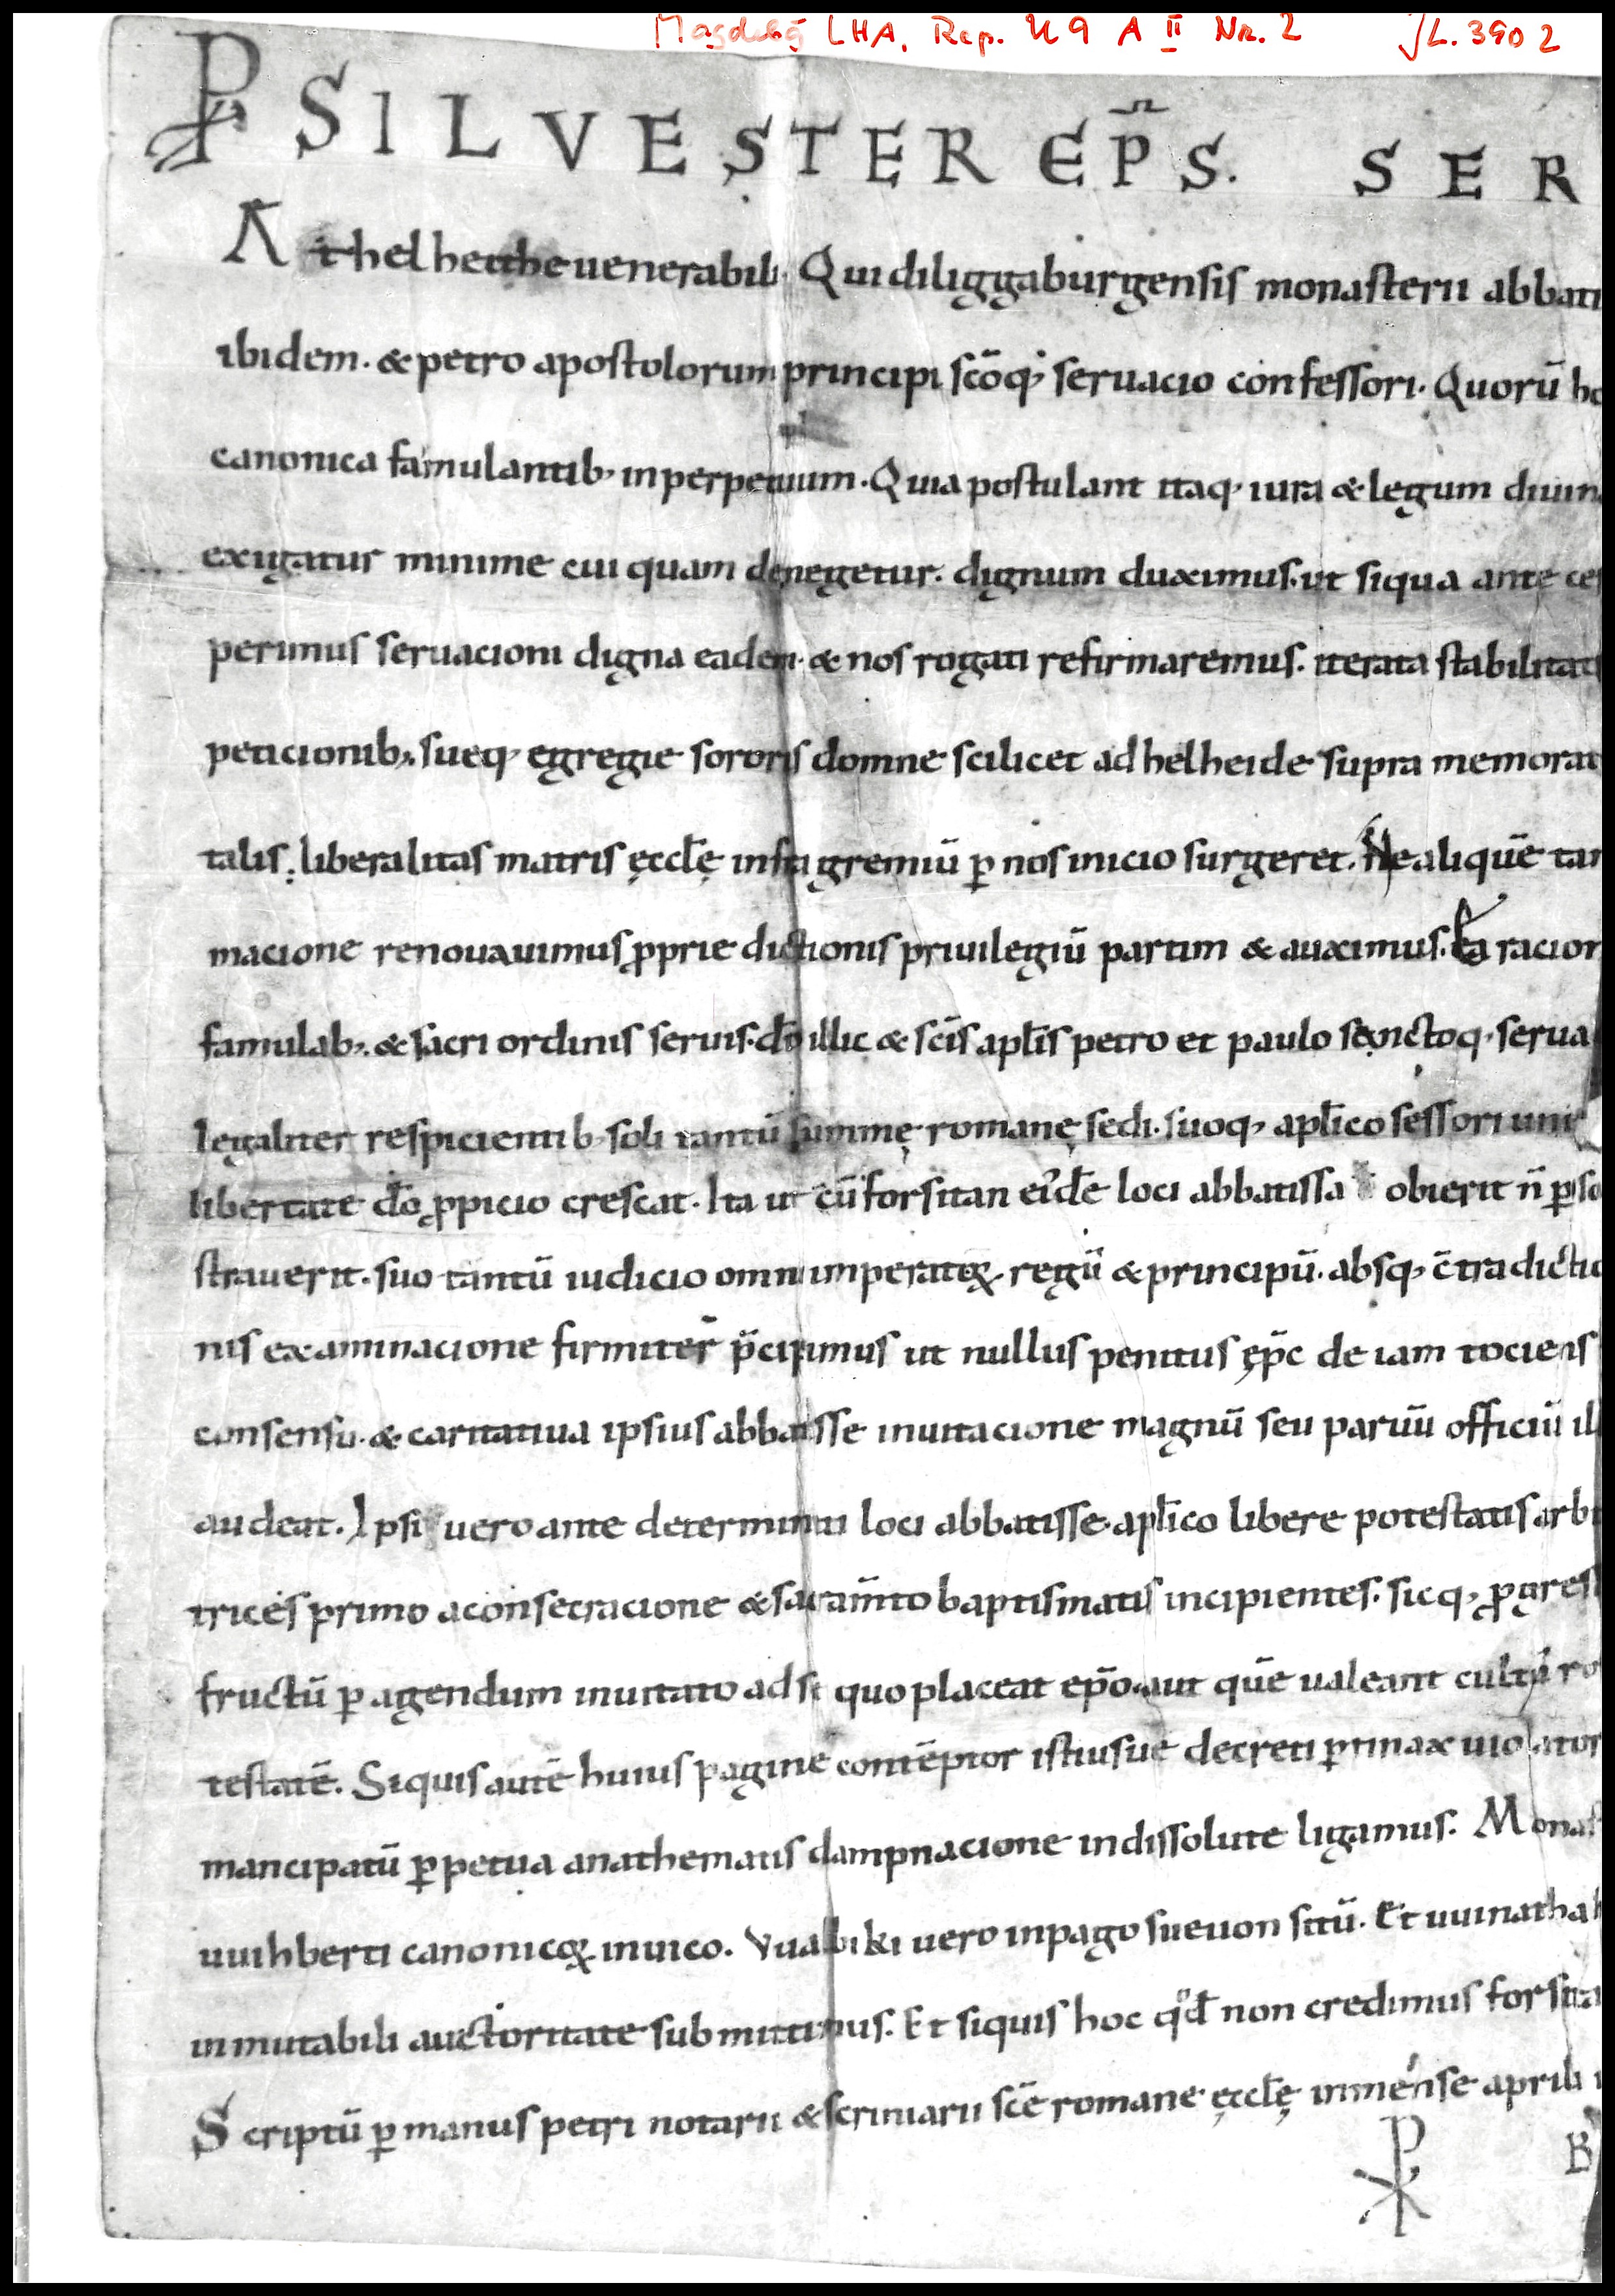 Magdebg LHA, Rep. U 9 A II Nr. 2 JL. 3902
☧ SILVESTER EP̄S. SER
Athelheithe uenerabili. Quidiliggaburgensis monasterii abbati
ibidem. & petro apostolorum principi sc̄oq; seruacio confessori. Quorū ho
canonica famulantib; in perpetuum. Quia postulant itaq; iura & legum diuin
exigatur minime cuiquam denegetur. dignum duximus. ut siqua ante ces
perimus seruacioni digna eadem. & nos rogati refirmaremus. iterata stabilitat
peticionib; sueq; egregie sororis domne scilicet adhelheide supra memorat
talis. liberalitas matris ęccl̄ę infra gremiū ꝑ nos inicio surgeret. Ne aliquē tan
macione renouauimus ꝓprie dictionis priuilegiū partim & auximus. Ea racion
famulab; & sacri ordinis seruis. dō illic & sc̄is apl̄is petro et paulo sanctoq; serua
legaliter respicientib; soli tantū summę romanę sedi. suoq; apl̄ico sessori uni
libertate dō ꝓpicio crescat. Ita ut cū forsitan eiꝰdē loci abbatissa obierit n̄ ꝑso
strauerit. suo tantū iudicio omni imperatoꝝ. regū & principū. absq; c̄tradictio
nis examinacione firmiter p̄cipimus ut nullus penitus ęp̄c de iam tociens
consensu. & caritatiua ipsius abbatisse inuitacione magnū seu paruū officiū ill
audeat. Ipsi uero ante determinati loci abbatisse. apl̄ico libere potestatis arbi
trices primo a consecracione & sacram̄to baptismatis incipientes. sicq; ꝓgres
fructū ꝑagendum inuitato ad se quo placeat ep̄o. aut quē ualeant cultū ro
testatē. Siquis autē huius pagine contēptor istiusue decreti ꝑtinax uiolator
mancipatū ꝑpetua anathematis dampnacione indissolute ligamus. Monas
uuihberti canonicoꝝ in uico. Vualbiki uero in pago sueuon sitū. Et uuinathah
inmutabili auctoritate submittimus. Et siquis hoc qđ non credimus forsita
Scriptū ꝑ manus petri notarii & scriniarii sc̄e romane ęccl̄ę in mense aprili i
☧ B